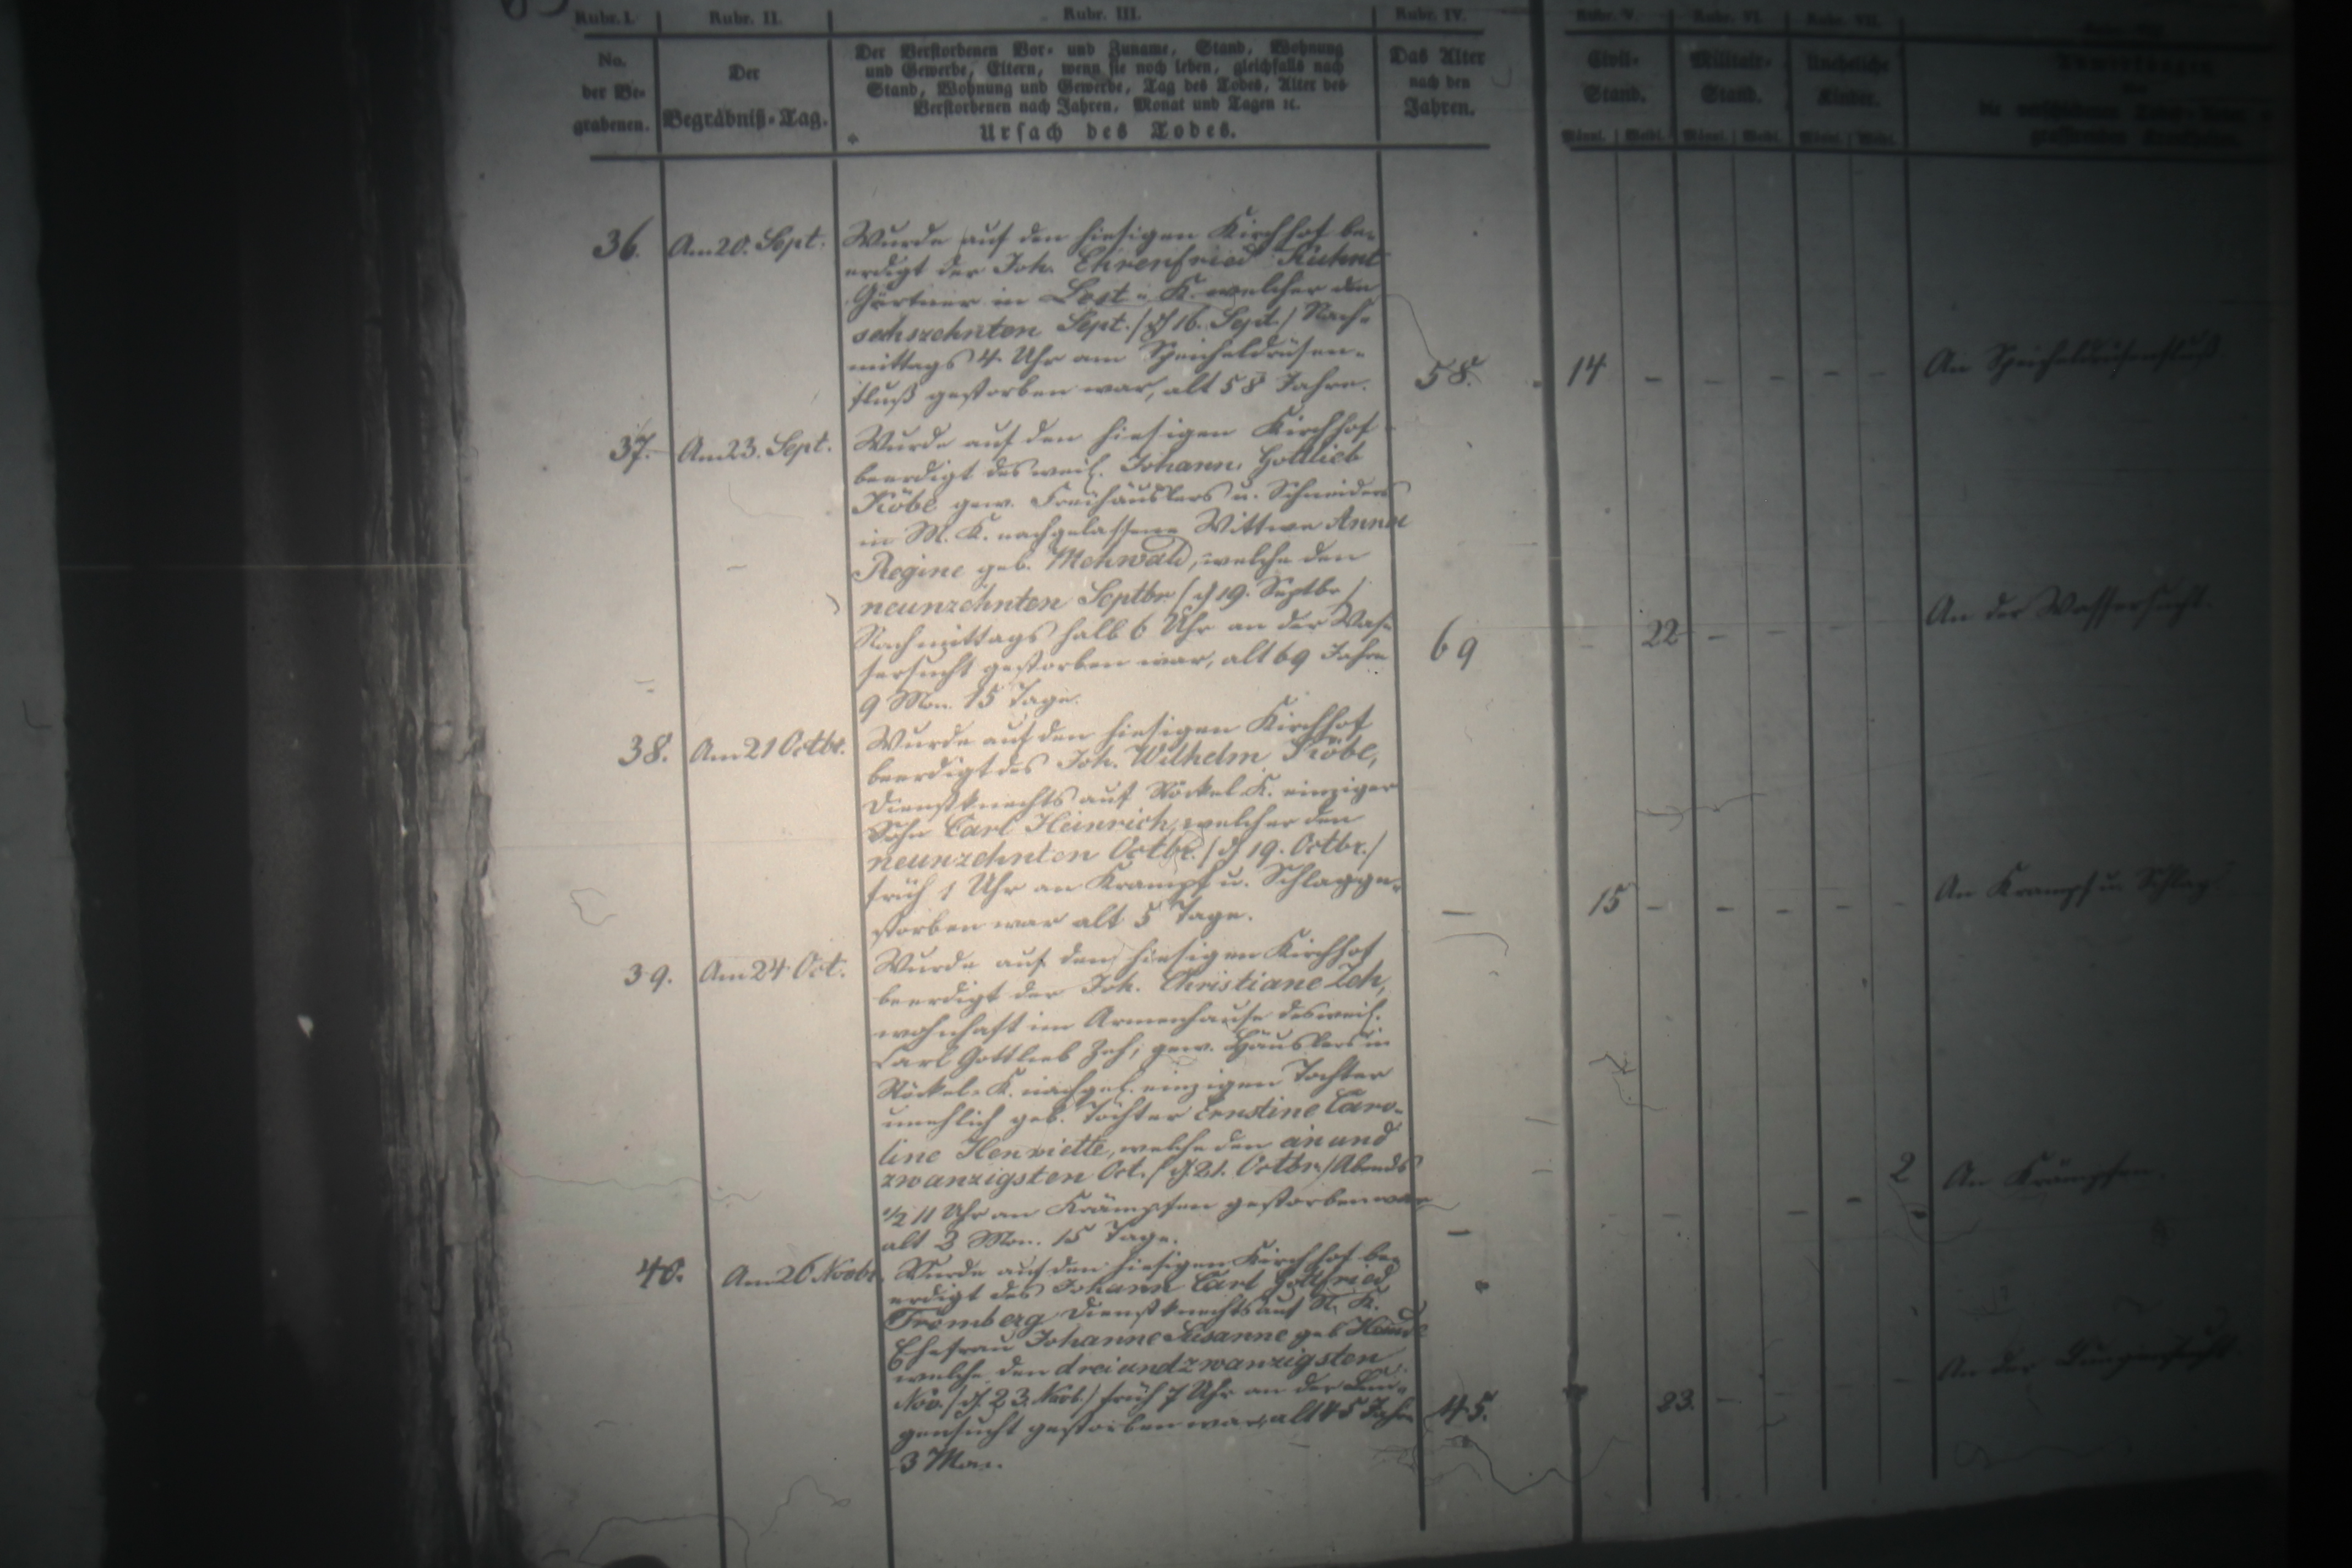 Rubr. I. Rubr. II. Rubr. III. Rubr. IV. Rubr. V. Rubr. VI. Rubr. VII.
No. der Be- grabenen.
Der Begräbniß-Tag.
Der Verstorbenen Vor- und Zuname, Stand, Wohnung
und Gewerbe, Eltern, wenn sie noch leben, gleichfalls nach
Stand, Wohnung und Gewerbe, Tag des Todes, Alter des
Verstorbenen nach Jahren, Monat und Tagen ꝛc.
Ursach des Todes.
Das Alter
nach den
Jahren.
Civil-
Stand.
Militair-
Stand.
Uneheliche
Kinder.
Männl. Weibl. Männl. Weibl. Männl. Weibl.
36. Am 20. Sept.
Wurde auf den hiesigen Kirchhof be-
erdigt der Joh. Ehrenfried Kuhnt
Gärtner in Lost-K. welcher den
sechszehnten Sept. / d 16. Sept. / Nach-
mittags 4 Uhr am Speicheldrüsen-
fluß gestorben war, alt 58 Jahre.
58. 14 - - - - - An Speicheldrüsenfluß
37. Am 23. Sept.
Wurde auf den hiesigen Kirchhof
beerdigt des weil. Johann Gottlieb
Köbe gew. Freihäuslers u. Schneiders
in M. K. nachgelassene Wittwe Anna
Regine geb. Mehwald, welche den
neunzehnten Septbr / d 19. Septbr /
Nachmittags halb 6 Uhr an der Was-
sersucht gestorben war, alt 69 Jahre
9 Mon. 15 Tage.
69 - 22 - - - - An der Wassersucht
38. Am 21 Octbr.
Wurde auf den hiesigen Kirchhof
beerdigt des Joh. Wilhelm Köbe,
Dienstknechts auf Nöckel K. einziger
Sohn Carl Heinrich, welcher den
neunzehnten Octbr. / d 19. Octbr. /
früh 1 Uhr an Krampf u. Schlag ge-
storben war alt 5 Tage.
— 15 - - - - - An Krampf u. Schlag
39. Am 24 Oct.
Wurde auf den hiesigen Kirchhof
beerdigt der Joh. Christiane Zeh,
wohnhaft im Armenhause des weil.
Carl Gottlieb Zeh, gew. Häuslers in
Nöckel-K. nachgel. einzigen Tochter
unehlich geb. Tochter Ernestine Caro-
line Henriette, welche den ein und
zwanzigsten Oct. / d. 21. Octbr. / Abends
1/2 11 Uhr an Krämpfen gestorben war
alt 3 Mon. 15 Tage.
— - - - - - 2 An Krämpfen.
40. Am 26 Novbr.
Wurde auf den hiesigen Kirchhof be-
erdigt des Johann Carl Gottfried
Fromberg Dienstknechts auf N. K.
Ehefrau Johanne Susanne geb.
welche den dreiundzwanzigsten
Nov. / d. 23. Novb. / früh 7 Uhr an der Lun-
gensucht gestorben war, alt 45 Jahre
3 Mon.
45. 23. - - An der Lungensucht